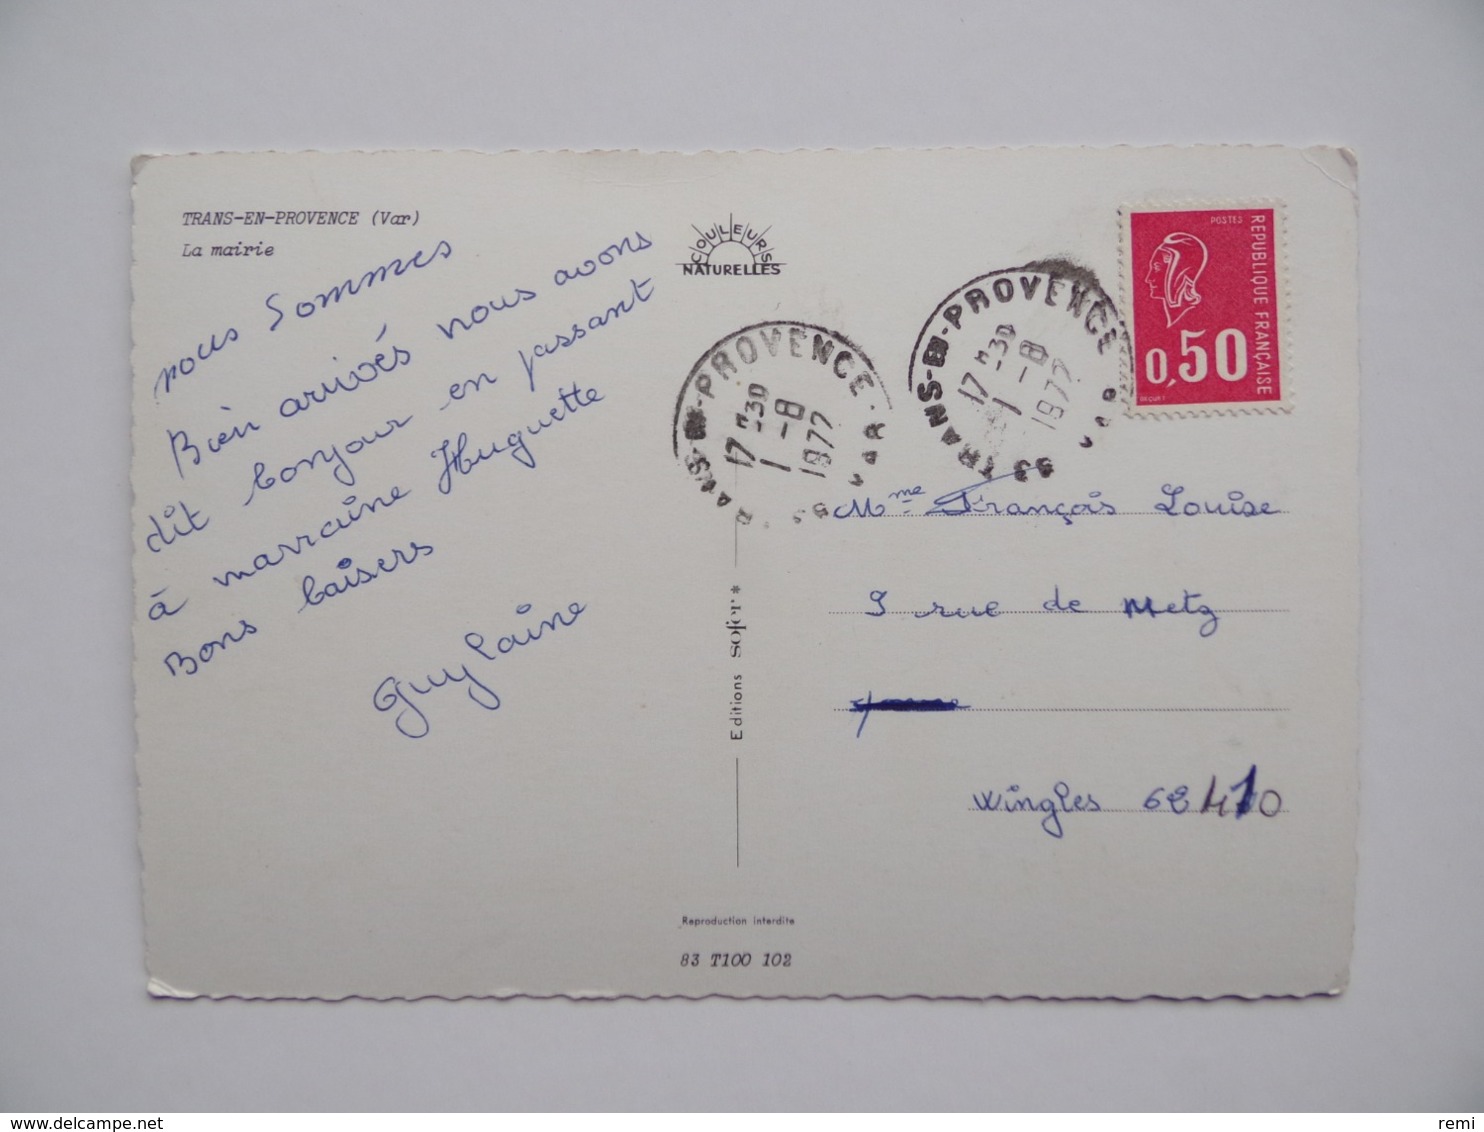 TRANS-EN-PROVENCE (Var)
La mairie
nous Sommes
Bien arrivés nous avons
dit bonjour en passant
à marraine Huguette
Bons baisers
Guylaine
COULEURS
NATURELLES
Editions sofer*
Reproduction interdite
83 T100 102
TRANS-EN-PROVENCE
17 H 30
1 -8
1977
83 VAR
TRANS-EN-PROVENCE
17 H 30
1 -8
1977
83 VAR
POSTES
REPUBLIQUE FRANÇAISE
0,50
BEQUET
Mme François Louise
9 rue de Metz
Wingles 62410
delcampe.net
remi